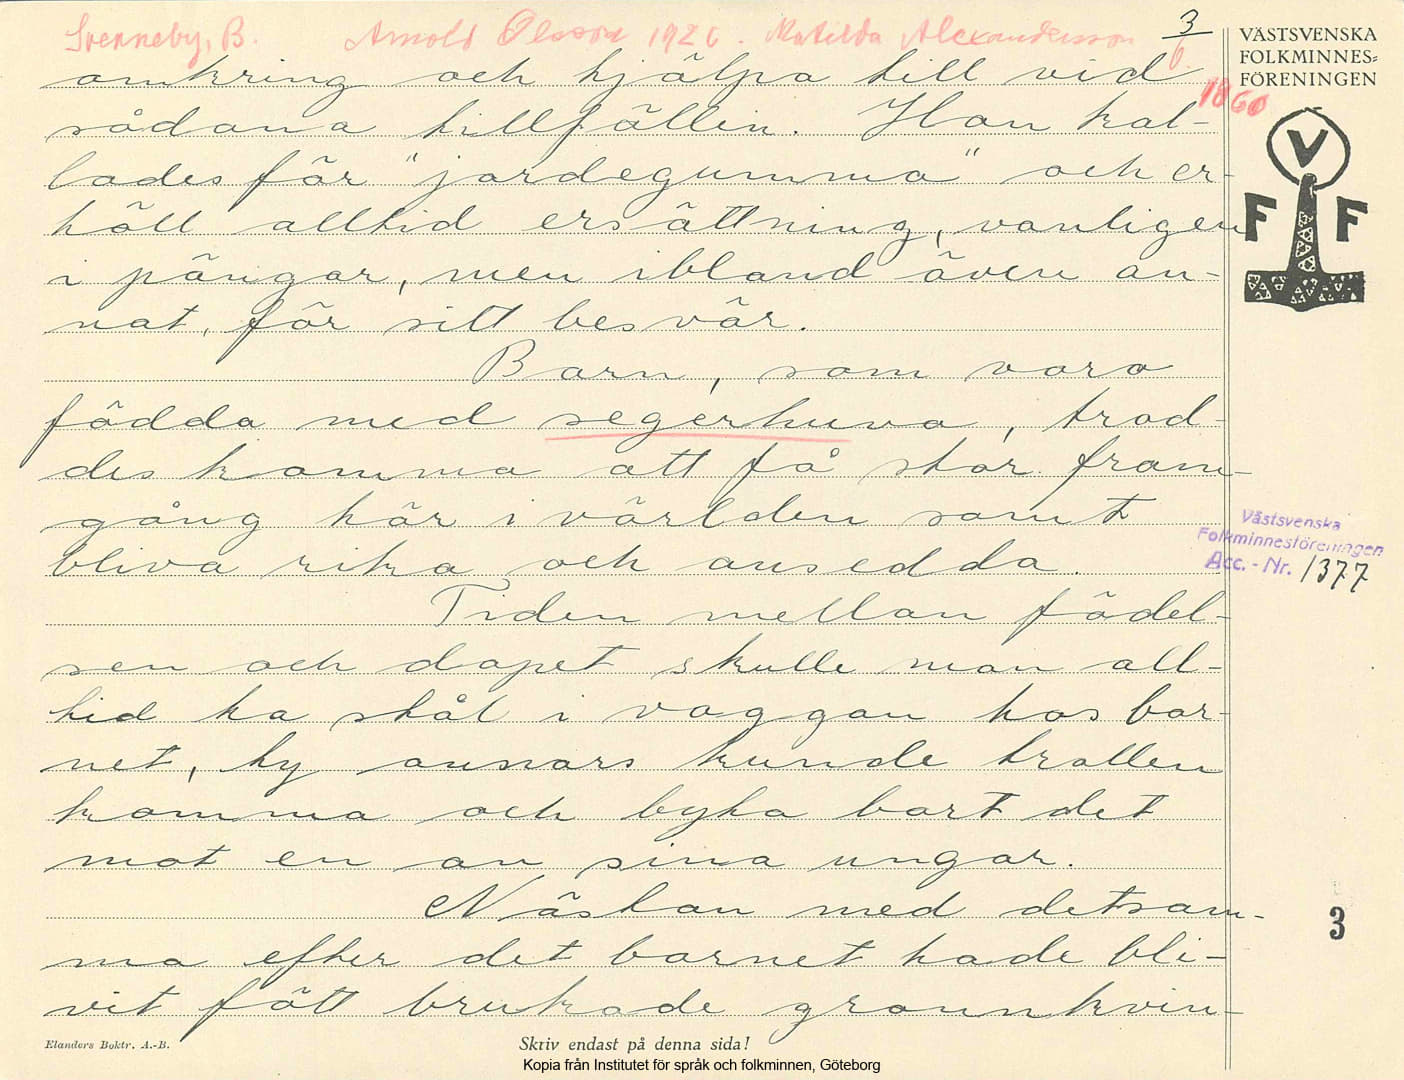 Svenneby, B. Arnold Olsson 1926. Matilda Alexandersson
3
6
VÄSTSVENSKA
FOLKMINNES=
FÖRENINGEN
1860
V
F F
omkring och hjälpa till vid
sådana tillfällen. Hon kal-
lades för "jordegumma" och er-
höll alltid ersättning, vanligen
i pängar, men ibland även an-
nat, för sitt besvär.
Barn, som voro
födda med segerhuva, trod-
des komma att få stor fram-
gång här i världen samt
bliva rika och ansedda.
Tiden mellan födel-
sen och dopet skulle man all-
tid ha stål i vaggan hos bar-
net, ty annars kunde trollen
komma och byta bort det
mot en av sina ungar.
Nästan med detsam-
ma efter det barnet hade bli-
vit fött brukade grannkvin-
Västsvenska
Folkminnesföreningen
Acc. - Nr. 1377
3
Elanders Boktr. A.-B.
Skriv endast på denna sida!
Kopia från Institutet för språk och folkminnen, Göteborg